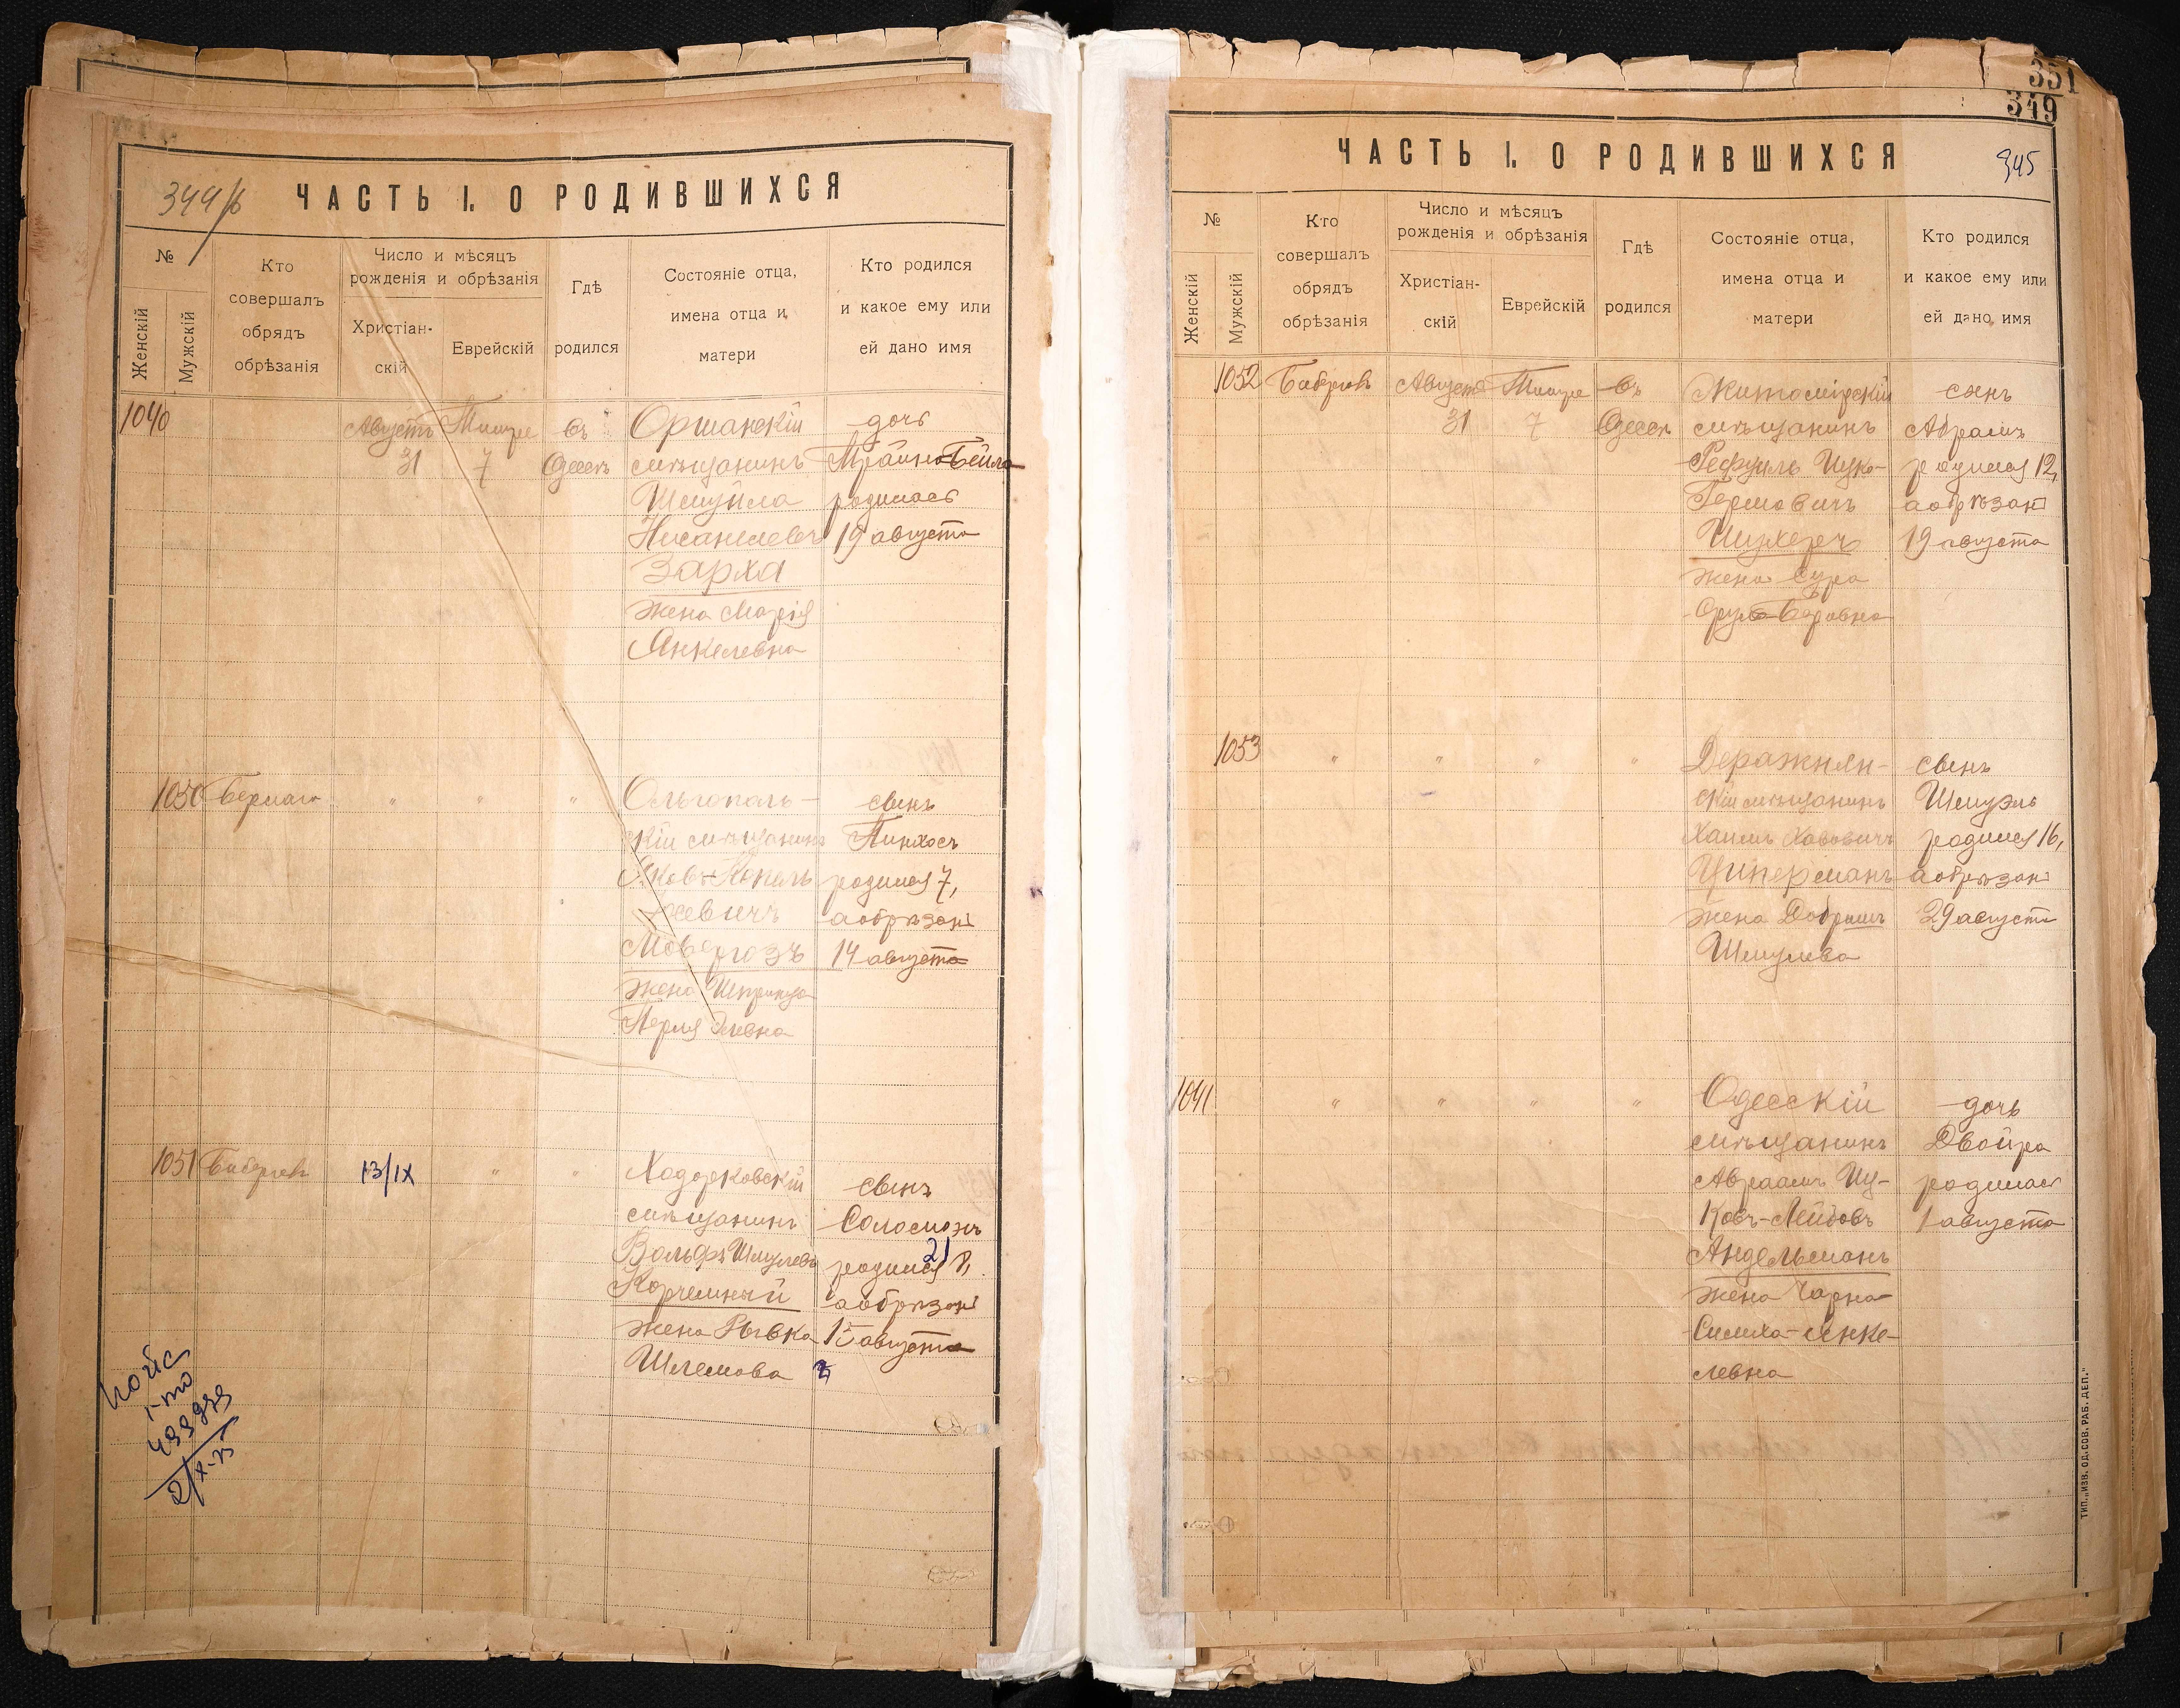 344/б
ЧАСТЬ I. О РОДИВШИХСЯ
№
Женскій
Мужскій
Кто
совершалъ
обрядъ
обрѣзанія
Число и мѣсяцъ
рожденія и обрѣзанія
Христіан-
скій
Еврейскій
Гдѣ
родился
Состояніе отца,
имена отца и
матери
Кто родился
и какое ему или
ей дано имя
1040
Августъ
31
Тишре
7
въ
Одессѣ
Оршанскій
мѣщанинъ
Шмуйла
Зарха
жена Марія
Янкелевна
дочь
родилась
19 августа
1050
"
"
"
Ольгополь-
скій мѣщанинъ
жена Шпринца
Перля
сынъ
Пинхосъ
родился 7,
а обрѣзанъ
14 августа
1051
13/IX
"
"
Ходорковскій
мѣщанинъ
Вольфъ Шмулевъ
Корчемный
жена Рывка
Шлемова
сынъ
Соломонъ
21
родился 8,
а обрѣзанъ
15 августа
2/X-75
351
349
345
ЧАСТЬ I. О РОДИВШИХСЯ
№
Женскій
Мужскій
Кто
совершалъ
обрядъ
обрѣзанія
Число и мѣсяцъ
рожденія и обрѣзанія
Христіан-
скій
Еврейскій
Гдѣ
родился
Состояніе отца,
имена отца и
матери
Кто родился
и какое ему или
ей дано имя
1052
Августъ
31
Тишре
7
въ
Одессѣ
Житомірскій
мѣщанинъ
жена Сура
сынъ
Абрамъ
родился 12,
а обрѣзанъ
19 августа
1053
"
"
"
"
Деражнян-
скій мѣщанинъ
Хаимъ
Циперманъ
жена
Шмулева
сынъ
Шмуэль
родился 16,
а обрѣзанъ
29 августа
1041
"
"
"
"
Одесскій
мѣщанинъ
Авраамъ Иц-
ковъ-Лейбовъ
Андельманъ
жена Чарна-
Симха-Янке-
левна
дочь
Двойра
родилась
1 августа
ТИП. „ИЗВ. ОД. СОВ. РАБ. ДЕП."